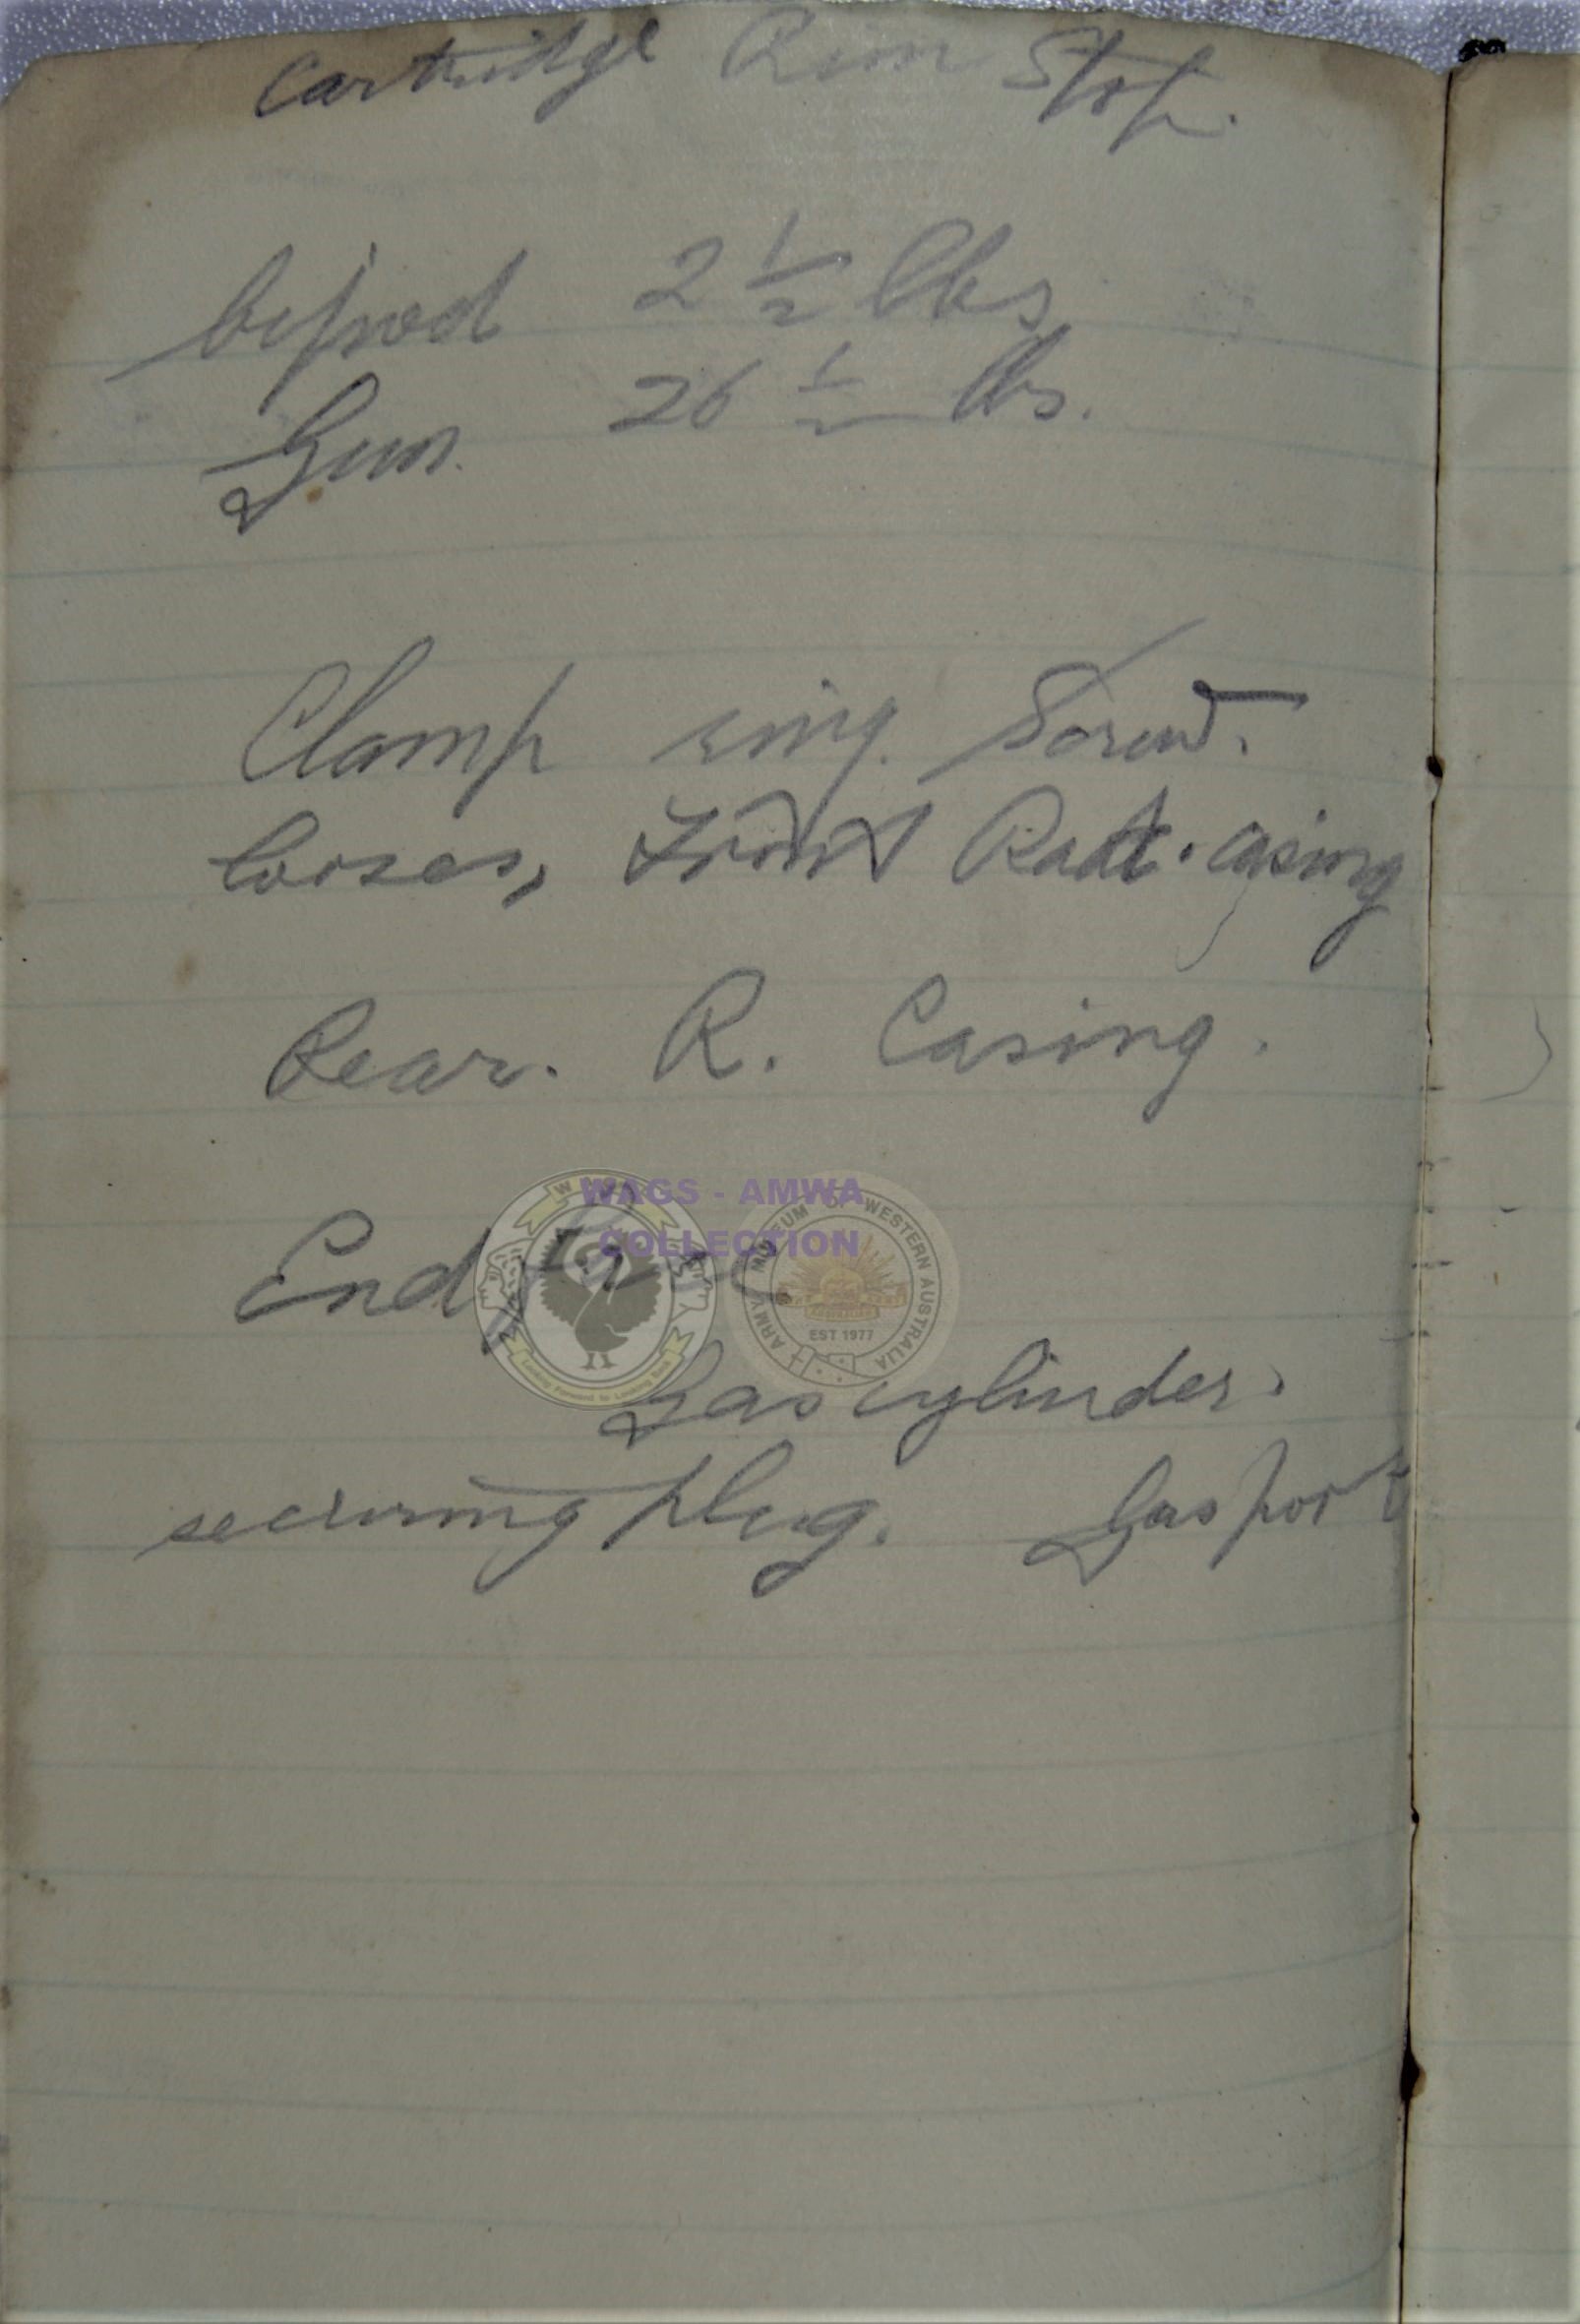 Cartridge Rim Stop.
bipod 2 1/2 lbs
Gun. 26 1/2 lbs.
Clamp ring. Screw.
looses, Front Radt. casing
Rear. R. Casing.
WAGS - AMWA
COLLECTION
End
ARMY MUSEUM OF WESTERN AUSTRALIA
EST 1977
Looking Forward to Looking Back
Gas cylinder.
securing plug. Gas port